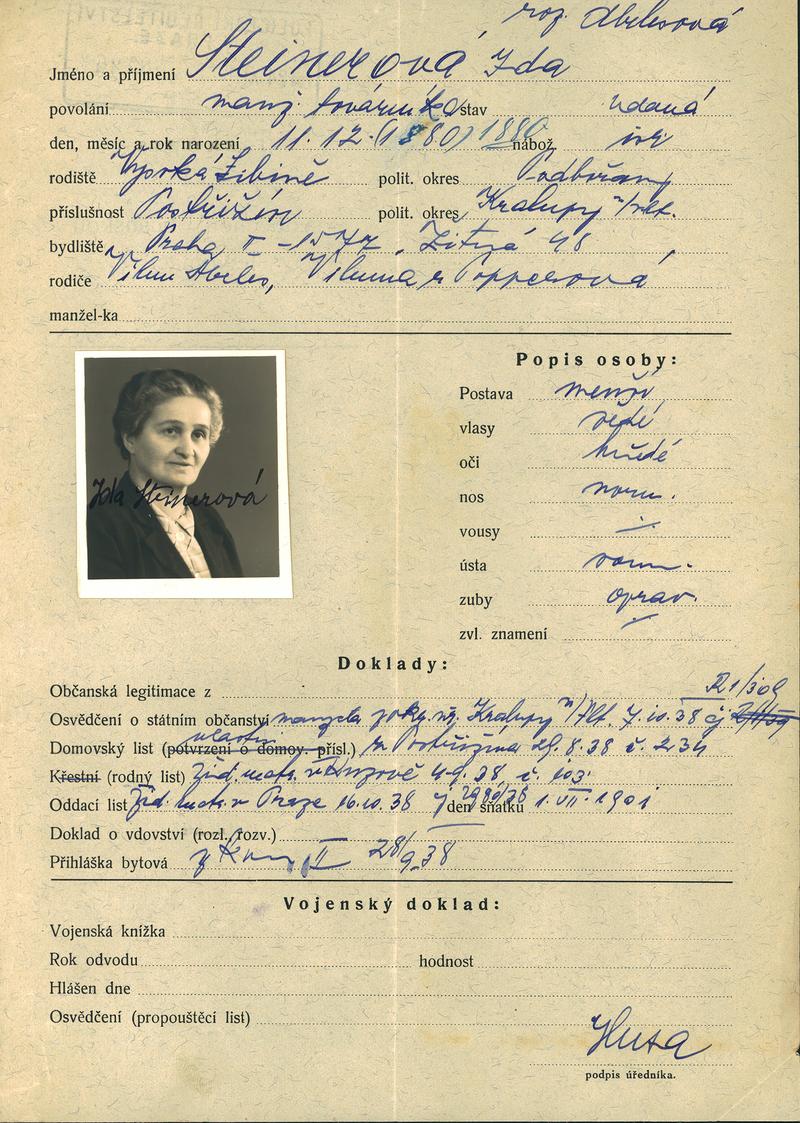 roz. Abelesová
Jméno a příjmení Steinerová Ida
povolání manž. továrníka stav vdaná
den, měsíc a rok narození 11.12.(1880) 1880 nábož. isr
rodiště Vysoká Libině polit. okres Podbořany
příslušnost Postřižín polit. okres Kralupy n/Vlt.
bydliště Praha II – 1577, Žitná 48
rodiče Vilém Abeles, Vilma r. Popperová
manžel-ka
Popis osoby:
Postava menší
vlasy šedé
oči hnědé
nos norm.
vousy
ústa norm.
zuby oprav.
zvl. znamení
Ida Steinerová
Doklady:
Občanská legitimace z
Osvědčení o státním občanství manžela Kralupy n/Vlt. 7.10.38 čj R1/309
vlastní
Domovský list (potvrzení o domov. přísl.) Postřižín 29.8.38 č. 234
Křestní (rodný list) Žid. matr. v 4.9.38 č. 103
Oddací list Žid. matr. v Praze 16.10.38 den sňatku 1.VII.1901
Doklad o vdovství (rozl., rozv.)
Přihláška bytová z kom. II 28/9.38
Vojenský doklad:
Vojenská knížka
Rok odvodu hodnost
Hlášen dne
Osvědčení (propouštěcí list)
podpis úředníka.